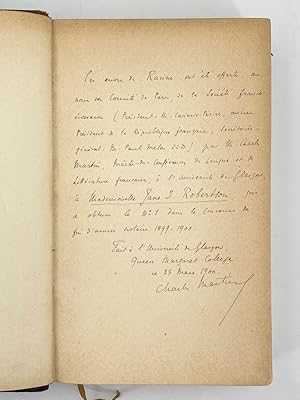 Ces œuvres de Racine ont été offertes, au
nom du Comité de Paris, de la Société franco-
écossaise (Président: M. Casimir-Périer, ancien
Président de la République française, Secrétaire-
général: M. Paul Melon) par M. Charles
Martin, Maître de Conférences de Langue et de
Littérature française, à l'Université de Glasgow
à Mademoiselle Jane J. Robertson qui
a obtenu le No 1 dans le Concours de
fin d'année scolaire 1899-1900.
Fait à l'Université de Glasgow
Queen Margaret College
ce 23 Mars 1900
Charles Martin